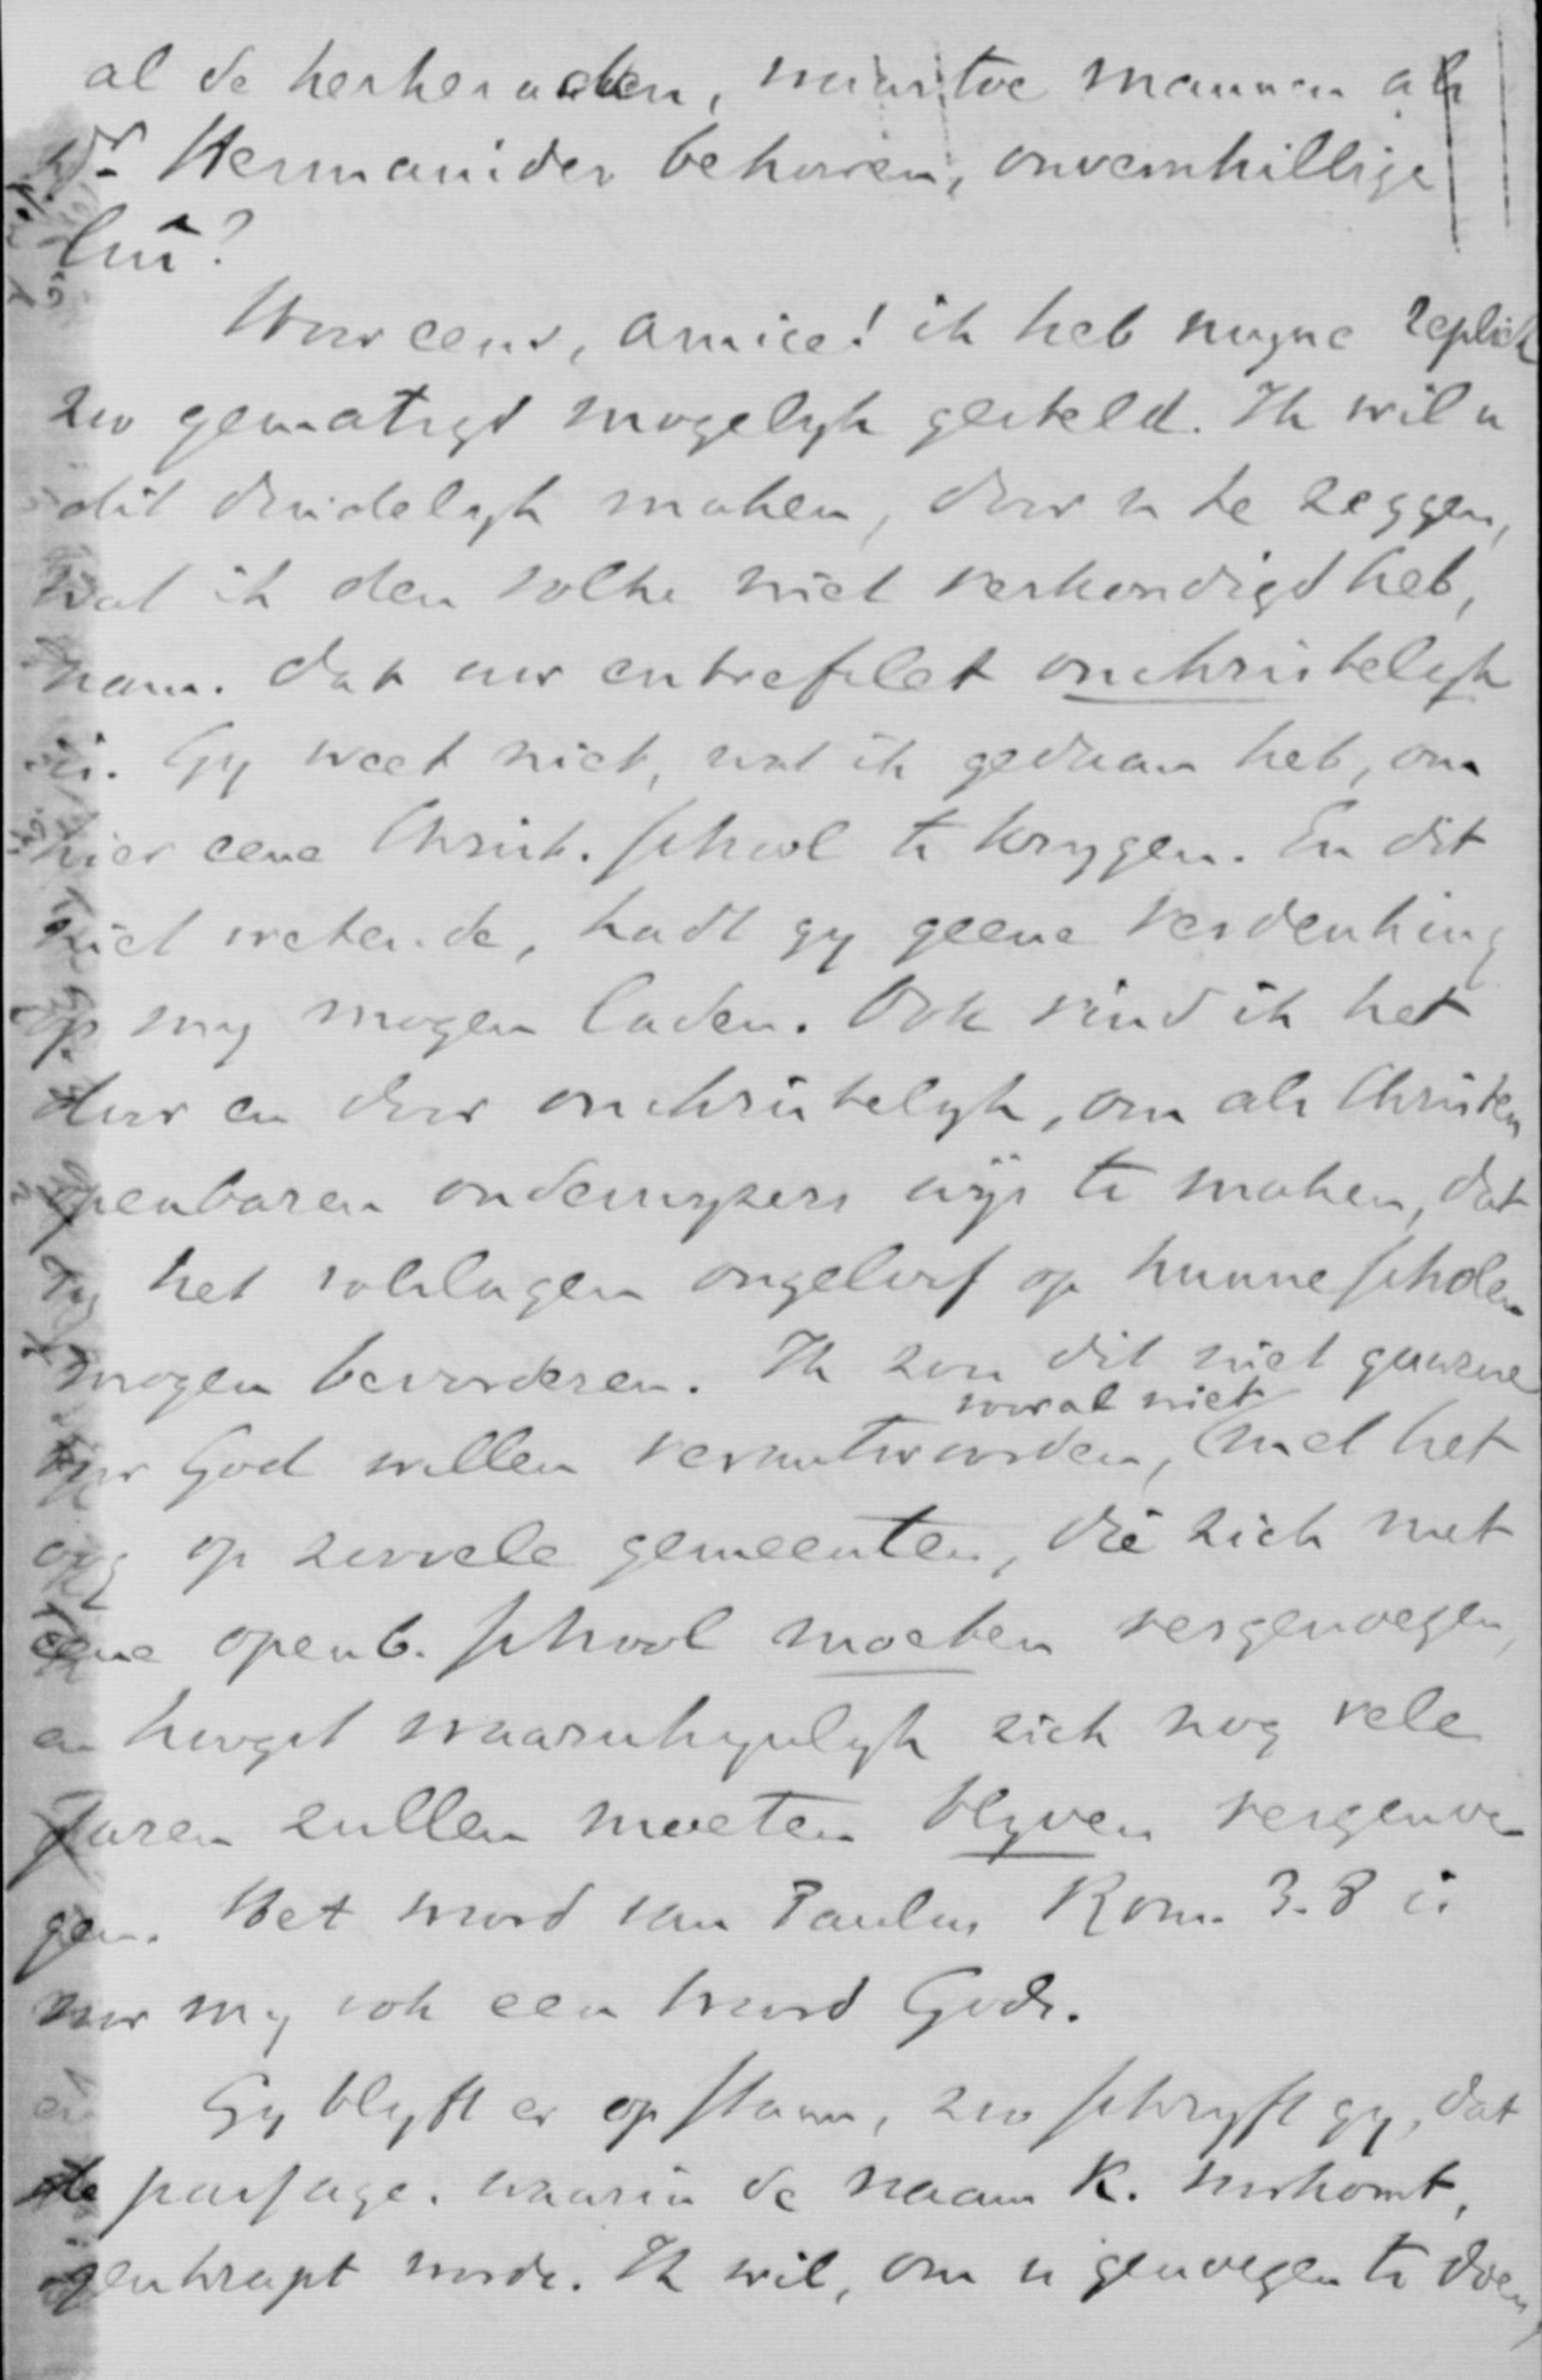 al de kerkeraden, waartoe mannen als
Dr Hermanides behooren, onverschillige
lui?
Hoor eens, amice! ik heb myne replick
zoo gematigd mogelyk gesteld. Ik wil u
dit duidelyk maken, door u te zeggen,
wat ik den volke niet verkondigd heb,
nam. dat uw entrefilet onchristelyk
is. Gy weet niet, wat ik gedaan heb, om
hier eene Christ. school te krygen. En dit
niet wetende, hadt gy geene verdenking
op my mogen laden. Ook vind ik het
door en door onchristelyk, om als Christen
openbaren onderwyzers wijs te maken, dat
zy het volslagen ongeloof op hunne scholen
mogen bevorderen. Ik zou dit niet gaarne
voor God willen verantwoorden, vooral niet met het
oog op zoovele gemeenten, die zich met
eene openb. school moeten vergenoegen,
en hoogst waarschynlyk zich nog vele
jaren zullen moeten blyven vergenoe
gen. Het woord van Paulus Rom. 3.8 is
voor my ook een woord Gods.
Gy blyft er op staan, zoo schryft gy, dat
de passage. waarin de naam K. voorkomt,
geschrapt worde. Ik wil, om u genoegen te doen,